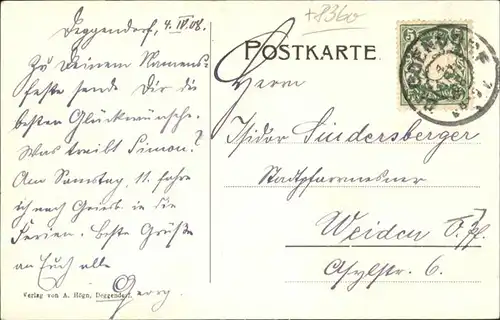 +8360
Deggendorf, 4. IV. 08.
Zu Deinem Namens-
feste sende Dir die
besten Glückwünsche.
Was treibt Simon?
Am Samstag, 11. fahre
ich nach Griesb. in die
Ferien. Beste Grüße
an Euch alle
Georg
Verlag von A. Högn, Deggendorf.
POSTKARTE.
5
DEGGENDORF
Herrn
Isidor Lindersberger
Stadtpfarrmesner
Weiden O. Pf.
Asylstr. 6.